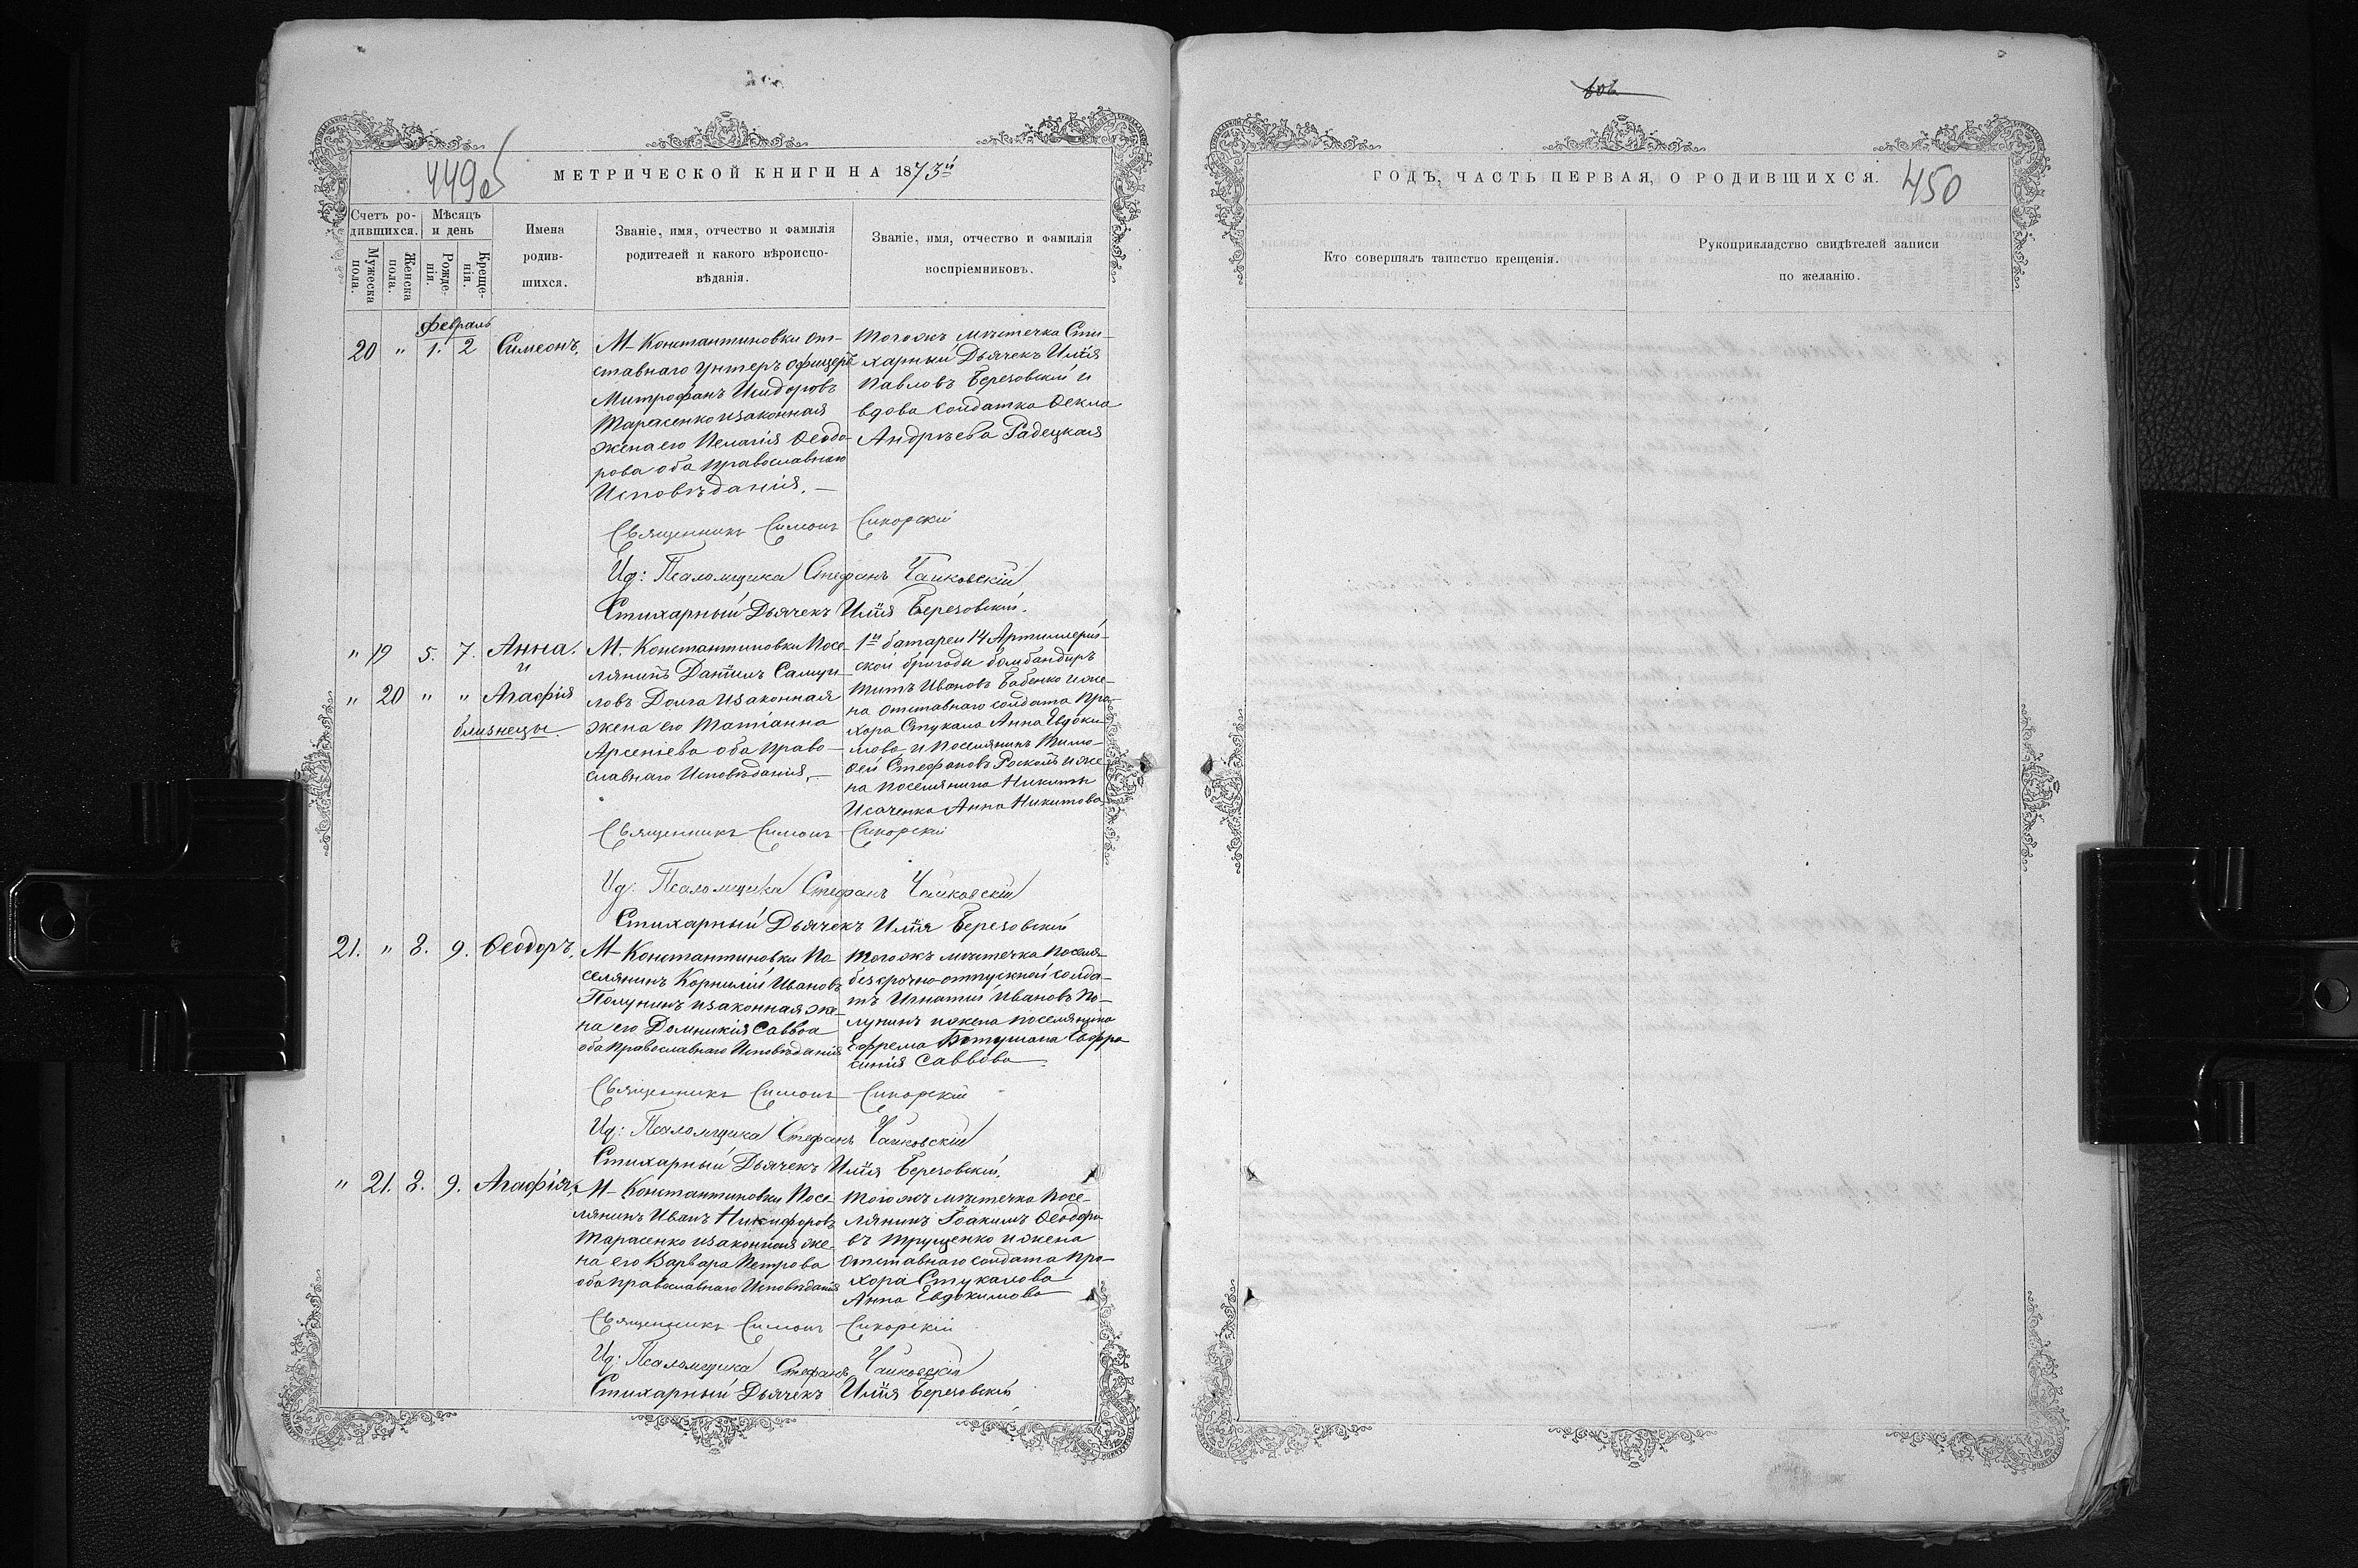 449об
МЕТРИЧЕСКОЙ КНИГИ НА 1873й
Счетъ ро-
дившихся.
Мужеска
пола.
Женска
пола.
Мѣсяцъ
и день
Рожде-
нія.
Креще-
нія.
Имена
родив-
шихся.
Званіе, имя, отчество и фамилія
родителей и какого вѣроиспо-
вѣданія.
Званіе, имя, отчество и фамилія
воспріемниковъ.
февраль
20 " 1. 2 Симеонъ.
М. Константиновки от-
ставнаго унтеръ офицеръ
Митрофанъ Исидоровъ
Тарасенко изаконная
жена его Пелагія Ѳеодо-
рова оба православнаго
Исповѣданія. —
Тогожъ мѣстечка Сти-
харный Дьячекъ Илія
Павловъ Березовскій и
вдова солдатка Ѳекла
Андрѣева Радецкая
Священникъ Симонъ Сикорскій
Ид: Псаломщика Стефанъ Чайковскій
Стихарный Дьячекъ Илія Березовскій.
" 19 5. 7. Анна.
и
" 20 " " Агафія
близнецы.
М. Константиновки Посе-
лянинъ Даніилъ Самуи-
ловъ Долга изаконная
жена его Татіанна
Арсеньева оба право-
славнаго Исповѣданія. —
1й батареи 14 Артиллерій-
ской бригоды бомбандиръ
Титъ Ивановъ Бабенко иже-
на отставнаго солдата Про-
хора Стукала Анна Евдоки-
мова и поселянинъ Тимо-
ѳей Стефановъ иже-
на поселянина Никиты
Исаченка Анна Никитова.
Священникъ Симонъ Сикорскій
Ид: Псаломщика Стефанъ Чайковскій
Стихарный Дьячекъ Илія Березовскій
21. " 8. 9. Ѳеодоръ.
М. Константиновки По-
селянинъ Корнилій Ивановъ
Полунинъ изаконная же-
на его Домникія Саввоа
оба православнаго Исповѣданія
Тогожъ мѣстечка поселя-
безсрочно-отпускной солда-
тъ Игнатій Ивановъ По-
лунинъ ижена поселянина
Ефрема Евфро
синія Саввова.
Священникъ Симонъ Сикорскій
Ид: Псаломщика Стефанъ Чайковскій
Стихарный Дьячекъ Илія Березовскій.
" 21. 8. 9. Агафія.
М. Константиновки Посе-
лянинъ Иванъ Никифоровъ
Тарасенко изаконная же-
на его Варвара Петрова
оба православнаго Исповѣданія
Тогожъ мѣстечка Посе-
лянинъ Іоакимъ Ѳеодоро
въ Трущенко ижена
отставнаго солдата Про-
хора Стукалова
Анна Евдокимова
Священникъ Симонъ Сикорскій
Ид: Псаломщика Стефанъ Чайковскій
Стихарный Дьячекъ Илія Березовскій
ГОДЪ, ЧАСТЬ ПЕРВАЯ, О РОДИВШИХСЯ.
450
Кто совершалъ таинство крещенія.
Рукоприкладство свидѣтелей записи
по желанію.